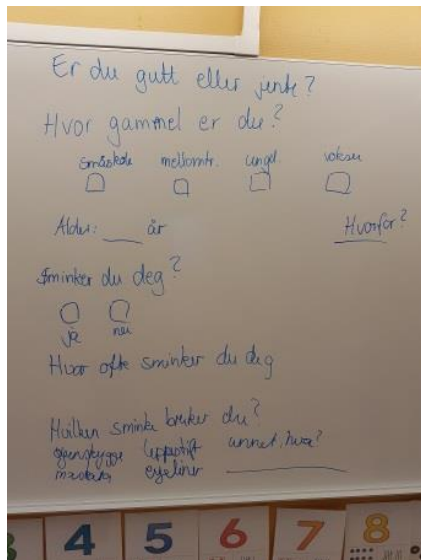 Er du gutt eller jente?
Hvor gammel er du?
småskole mellomtr. ungd. voksen
Alder: ___ år
Hvorfor?
Sminker du deg?
ja nei
Hvor ofte sminker du deg
Hvilken sminke bruker du?
øyenskygge leppestift annet, hva?
maskara eyeliner
4 5 6 7 8